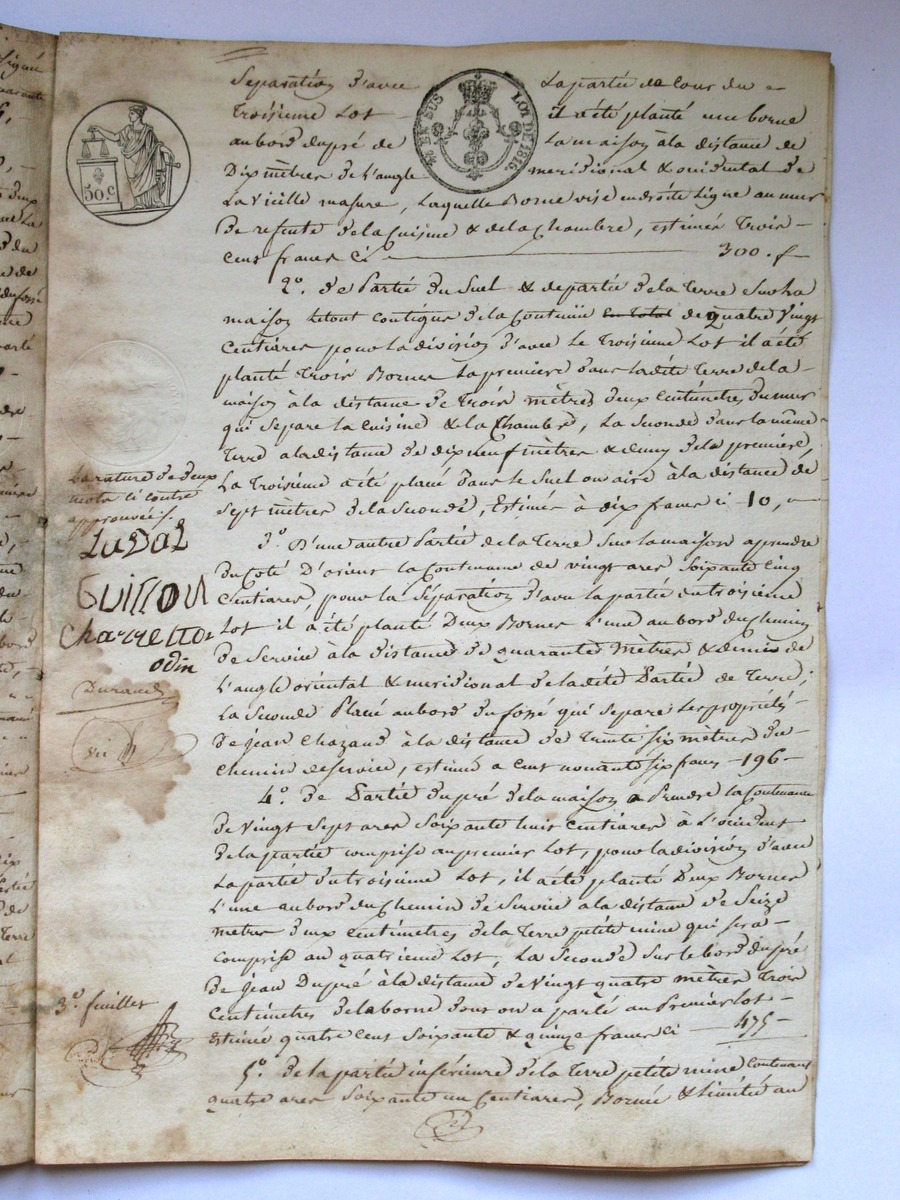 Séparation d'avec la partie de Cour du
Troisième Lot il a été planté une borne
au bord du pré de la maison à la distance de
Dix mètres de l'angle méridional & occidental de
La Vieille masure, Laquelle Borne vise en droite Ligne au mur
De refente de la Cuisine & de la Chambre, estimés Trois
cens francs ci 300. f
50 c
EN SUS LOI DE 1816
2°. De Partie du Suel & de partie de la Terre Sur la
maison le tout contigus de la Contenüe de quatre Vingt
Centiares pour la division d'avec Le Troisième Lot il a été
planté Trois Bornes La première dans la dite Terre de la
maison à la distance de Trois mètres deux Centimètres du mur
qui Sépare la Cuisine & la Chambre, La Seconde dans la même
Terre à la distance de dix neuf mètres & demy de la première,
La Troisième a été placé dans le Suel ou aire à la distance de
Sept mètres de la Seconde, Estimés à dix francs ci 10,
La rature de deux
mots ci contre
approuvée
Ladal
Guillon
Charretton
odin
Durand
3°. D'une autre Partie de la Terre Sur la maison a prendre
Du Coté D'orient la Contenance de vingt ares Soixante Cinq
Centiares, pour la Séparation d'avec la partie du troisième
Lot il a été planté Deux Bornes L'une au bord du Chemin
De Service à la distance de quarante Mètres & demie de
L'angle oriental & meridional de la dite Partie de Terre;
La Seconde Placée au bord du fossé qui Sépare les propriétés
De jean Chazaud à la distance de Trente Six mètres du
Chemin de service, estimé a Cent nonante Six francs 196
4°. De Partie du pré de la maison a Prendre la Contenance
De Vingt Sept ares Soixante huit Centiares à L'occident
De la partie comprise au premier Lot, pour la division d'avec
La partie du troisième Lot, il a été planté Deux Bornes
L'une au bord du Chemin de Service à la distance de Seize
mètres deux Centimètres de la Terre petite mine qui sera
comprise au quatrième Lot, La Seconde Sur le bord du pré
De Jean Dupré à la distance de Vingt quatre mètres Trois
Centimètres de la borne dont on a parlé au Premier Lot
Estimée quatre Cent Soixante & quinze francs ci 475
3e. feuillet
5°. De la partie inférieure de la Terre petite mine Contenant
quatre ares Soixante un Centiares, Bornée & limitée au